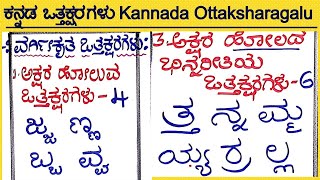 ಕನ್ನಡ ಒತ್ತಕ್ಷರಗಳು Kannada Ottaksharagalu
ವರ್ಗೀಕೃತ ಒತ್ತಕ್ಷರಗಳು:
1. ಅಕ್ಷರ ಹೋಲುವ
ಒತ್ತಕ್ಷರಗಳು- 4
ಜ್ಜ ಣ್ಣ
ಬ್ಬ ವ್ವ
3. ಅಕ್ಷರ ಹೋಲದ
ಭಿನ್ನರೀತಿಯ
ಒತ್ತಕ್ಷರಗಳು- 6
ತ್ತ ನ್ನ ಮ್ಮ
ಯ್ಯ ರ್ರ ಲ್ಲ